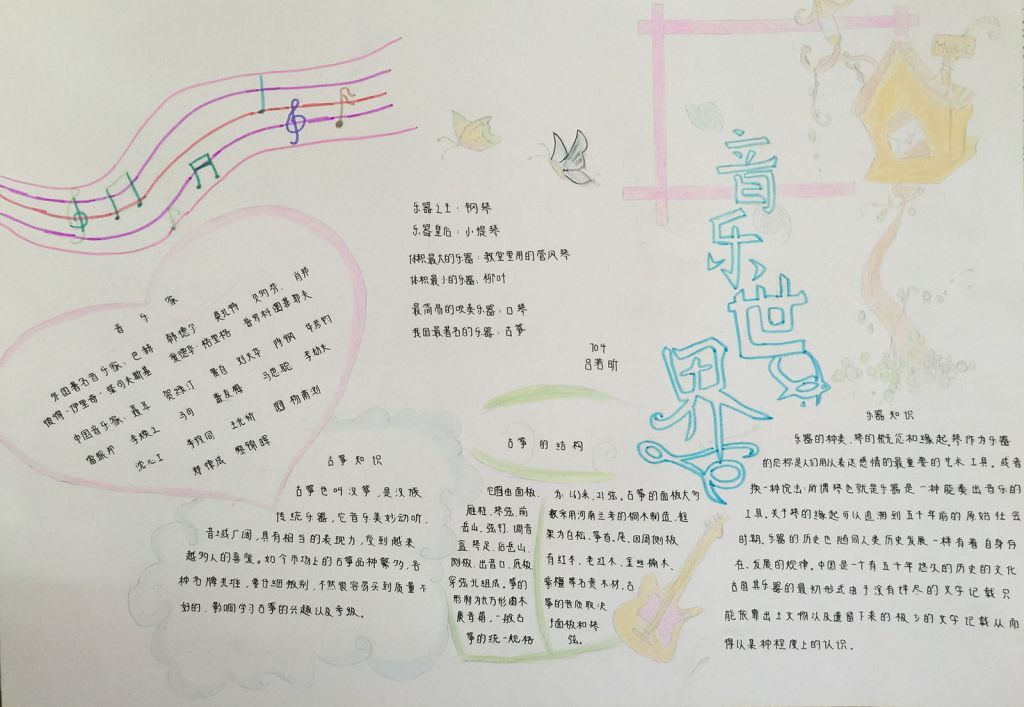 音乐世界
音乐家
外国著名音乐家：巴赫 韩德尔 莫扎特 贝多芬 肖邦
彼得·伊里奇·柴可夫斯基 爱德华·格里格
中国音乐家：聂耳 贺绿汀 黄自 刘天华 萧钢 华彦钧
雷振邦 李焕之 马可 孟友梅 马思聪 李劫夫
沈心工 李双同 王光祈 杨荫浏
乐器之王：钢琴
乐器皇后：小堤琴
体积最大的乐器：教堂里用的管风琴
体积最小的乐器：柳叶
最简易的吹奏乐器：口琴
我国最著名的乐器：古筝
704
吕若昕
古筝知识
古筝也叫汉筝，是汉族
传统乐器，它音乐美妙动听，
音域广阔，具有相当的表现力，受到越来
越多人的喜爱。如今市场上的古筝品种繁多，各
种名牌先进，要仔细甄别，不然很容易买到质量不
好的，影响学习古筝的兴趣以及考级。
古筝的结构
它由面板、
雁柱、琴弦、前
岳山、弦钉、调音
盒、琴足、后岳山、
侧板、出音口、底板、
穿弦孔组成，筝的
形制为长方形木质
共鸣箱，一般古
筝的统一规格
为：1.63米，21弦。古筝的面板大多
数采用河南兰考的桐木制造，框
架为白松，筝首、尾、四周侧板
有红木、老红木、金丝楠木、
紫檀等名贵木材，古
筝的音质取决
于面板和琴
弦。
乐器知识
乐器的种类、琴的概念和缘起，琴作为乐器
的总称是人们用以表达感情的最重要的艺术工具。或者
换一种说法：所谓琴也就是乐器是一种能奏出音乐的
工具。关于琴的缘起可以追溯到五千年前的原始社会
时期。乐器的历史也随同人类历史发展一样有着自身存
在、发展的规律。中国是一个有五千年悠久的历史的文化
古国其乐器的最初形式由于没有详尽的文字记载只
能依靠出土文物以及遗留下来的极少的文字记载从而
得以某种程度上的认识。